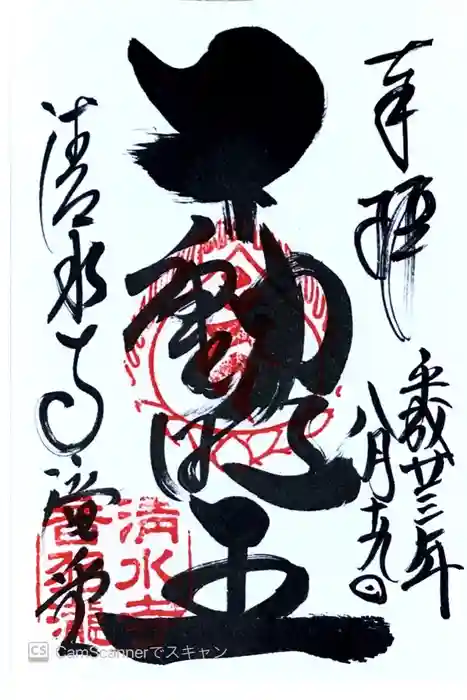 奉拝
平成廿三年
八月十九日
不動明王
清水寺
清水寺
CamScannerでスキャン